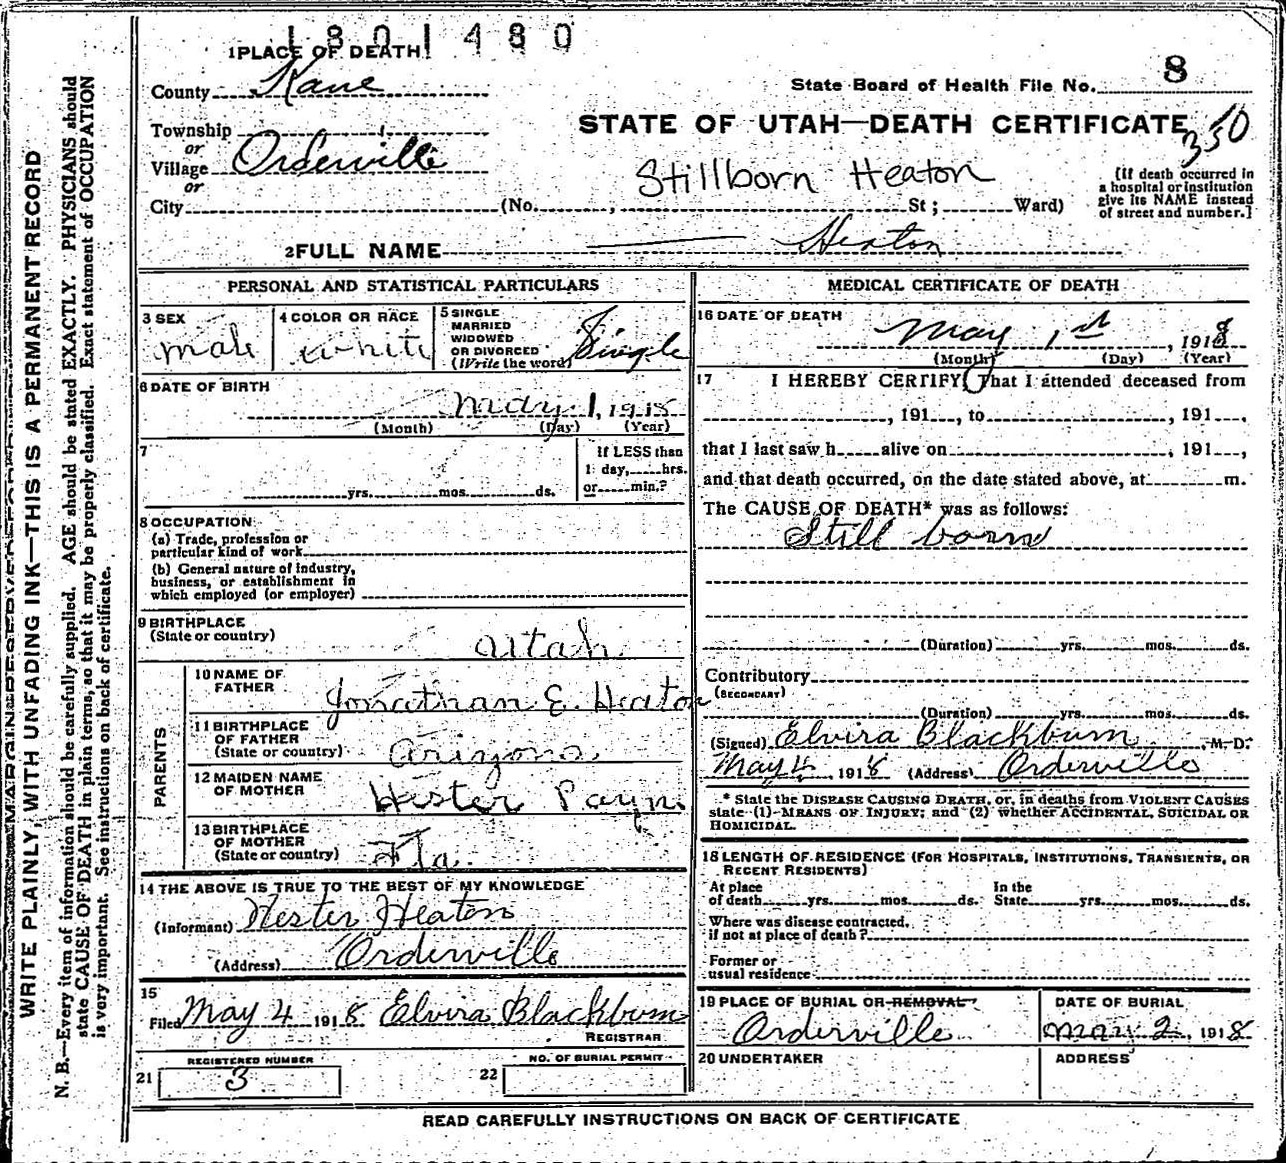 1801480
1 PLACE OF DEATH
County Kane
State Board of Health File No. 8
STATE OF UTAH—DEATH CERTIFICATE
350
Township
or
Village Orderville
or
Stillborn Heaton
City (No. , St ; Ward)
[If death occurred in
a hospital or institution
give its NAME instead
of street and number.]
2 FULL NAME Heaton
PERSONAL AND STATISTICAL PARTICULARS
3 SEX
male
4 COLOR OR RACE
white
5 SINGLE
MARRIED
WIDOWED
OR DIVORCED
(Write the word)
Single
6 DATE OF BIRTH
May 1, 1918
(Month) (Day) (Year)
7
yrs. mos. ds.
If LESS than
1 day, hrs.
or min.?
8 OCCUPATION
(a) Trade, profession or
particular kind of work
(b) General nature of industry,
business, or establishment in
which employed (or employer)
9 BIRTHPLACE
(State or country)
Utah
PARENTS
10 NAME OF
FATHER
Jonathan E. Heaton
11 BIRTHPLACE
OF FATHER
(State or country)
Arizona
12 MAIDEN NAME
OF MOTHER
Hester Payn
13 BIRTHPLACE
OF MOTHER
(State or country)
Fla.
14 THE ABOVE IS TRUE TO THE BEST OF MY KNOWLEDGE
(Informant) Hester Heaton
(Address) Orderville
15
Filed May 4 1918 Elvira Blackburn
REGISTRAR
REGISTERED NUMBER
21 3
NO. OF BURIAL PERMIT
22
MEDICAL CERTIFICATE OF DEATH
16 DATE OF DEATH
May 1st, 1918
(Month) (Day) (Year)
17 I HEREBY CERTIFY, That I attended deceased from
, 191 , to , 191 ,
that I last saw h alive on , 191 ,
and that death occurred, on the date stated above, at m.
The CAUSE OF DEATH* was as follows:
Still born
(Duration) yrs. mos. ds.
Contributory
(SECONDARY)
(Duration) yrs. mos. ds.
(Signed) Elvira Blackburn, M. D.
May 4, 1918 (Address) Orderville
* State the DISEASE CAUSING DEATH, or, in deaths from VIOLENT CAUSES
state (1) MEANS OF INJURY; and (2) whether ACCIDENTAL, SUICIDAL OR
HOMICIDAL.
18 LENGTH OF RESIDENCE (FOR HOSPITALS, INSTITUTIONS, TRANSIENTS, OR
RECENT RESIDENTS)
At place
of death yrs. mos. ds.
In the
State yrs. mos. ds.
Where was disease contracted,
if not at place of death?
Former or
usual residence
19 PLACE OF BURIAL OR REMOVAL
Orderville
DATE OF BURIAL
May 2, 1918
20 UNDERTAKER
ADDRESS
READ CAREFULLY INSTRUCTIONS ON BACK OF CERTIFICATE
MARGIN RESERVED FOR BINDING
WRITE PLAINLY, WITH UNFADING INK—THIS IS A PERMANENT RECORD
N. B.—Every item of information should be carefully supplied. AGE should be stated EXACTLY. PHYSICIANS should
state CAUSE OF DEATH in plain terms, so that it may be properly classified. Exact statement of OCCUPATION
is very important. See instructions on back of certificate.